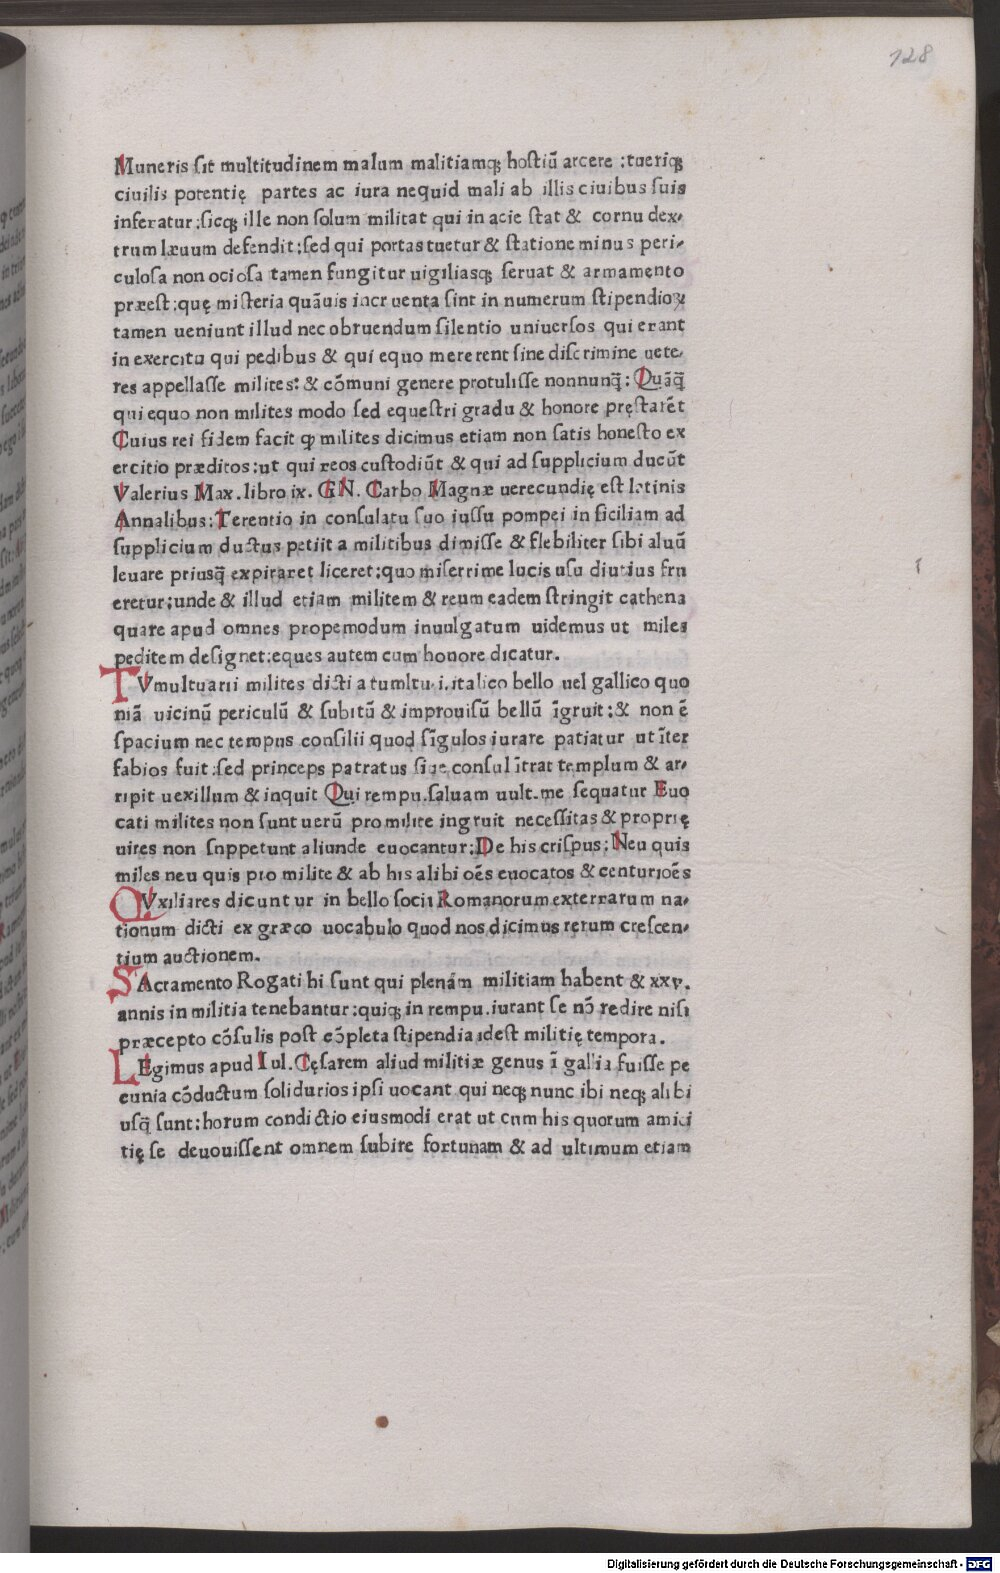 128
Muneris sit multitudinem malum malitiamqꝫ hostiū arcere : tueriqꝫ
ciuilis potentię partes ac iura nequid mali ab illis ciuibus suis
inferatur : sicqꝫ ille non solum militat qui in acie stat & cornu dex-
trum læuum defendit : sed qui portas tuetur & statione minus peri-
culosa non ociosa tamen fungitur uigiliasqꝫ seruat & armamento
præest : quę misteria quāuis incruenta sint in numerum stipendioꝝ
tamen ueniunt illud nec obruendum silentio uniuersos qui erant
in exercitu qui pedibus & qui equo mererent sine discrimine uete-
res appellasse milites : & cōmuni genere protulisse nonnunq̄ : Quāq̄
qui equo non milites modo sed equestri gradu & honore pręstarēt
Cuius rei fidem facit ꝙ milites dicimus etiam non satis honesto ex
ercitio præditos : ut qui reos custodiūt & qui ad supplicium ducūt
Valerius Max. libro ix. GN. Carbo Magnæ uerecundię est latinis
Annalibus : Terentio in consulatu suo iussu pompei in siciliam ad
supplicium ductus petiit a militibus dimisse & flebiliter sibi aluū
leuare priusq̄ expiraret liceret : quo miserrime lucis usu diutius fru
eretur ; unde & illud etiam militem & reum eadem stringit cathena
quare apud omnes propemodum inuulgatum uidemus ut miles
peditem designet : eques autem cum honore dicatur.
TVmultuarii milites dicti a tumltu .i. italico bello uel gallico quo
niā uicinū periculū & subitū & improuisū bellū īgruit : & non ē
spacium nec tempus consilii quod sīgulos iurare patiatur ut īter
fabios fuit : sed princeps patratus siue consul ītrat templum & ar-
ripit uexillum & inquit Qui rempu. saluam uult. me sequatur Euo
cati milites non sunt uerū pro milite ingruit necessitas & proprię
uires non suppetunt aliunde euocantur : De his crispus : Neu quis
miles neu quis pro milite & ab his alibi oēs euocatos & centurioēs
AVxiliares dicuntur in bello socii Romanorum exterrarum na-
tionum dicti ex græco uocabulo quod nos dicimus rerum crescen-
tium auctionem.
SAcramento Rogati hi sunt qui plenam militiam habent & xxv.
annis in militia tenebantur : quiqꝫ in rempu. iurant se nō redire nisi
præcepto cōsulis post cōpleta stipendia idest militię tempora.
LEgimus apud Iul. Cęsarem aliud militiæ genus ī gallia fuisse pe
cunia cōductum solidurios ipsi uocant qui neqꝫ nunc ibi neqꝫ alibi
usq̄ sunt : horum condictio eiusmodi erat ut cum his quorum amici
tię se deuouissent omnem subire fortunam & ad ultimum etiam
Digitalisierung gefördert durch die Deutsche Forschungsgemeinschaft - DFG